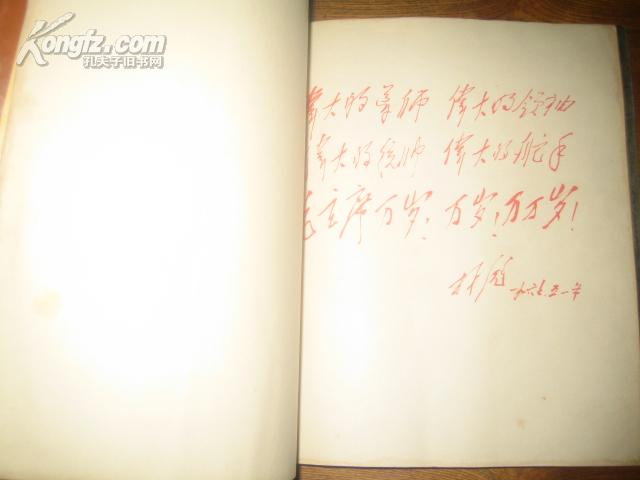 Kongfz.com
孔夫子旧书网
偉大的导师 偉大的领袖
偉大的统帅 偉大的舵手
毛主席万岁！万岁！万万岁！
林彪 一九六七.五.一节